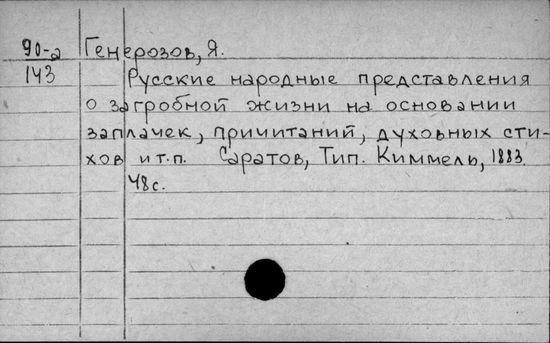 90-а Генерозов, Я.
143 Русские народные представления
о загробной жизни на основании
заплачек, причитаний, духовных сти-
хов и т.п. Саратов, Тип. Киммель, 1883.
48 с.